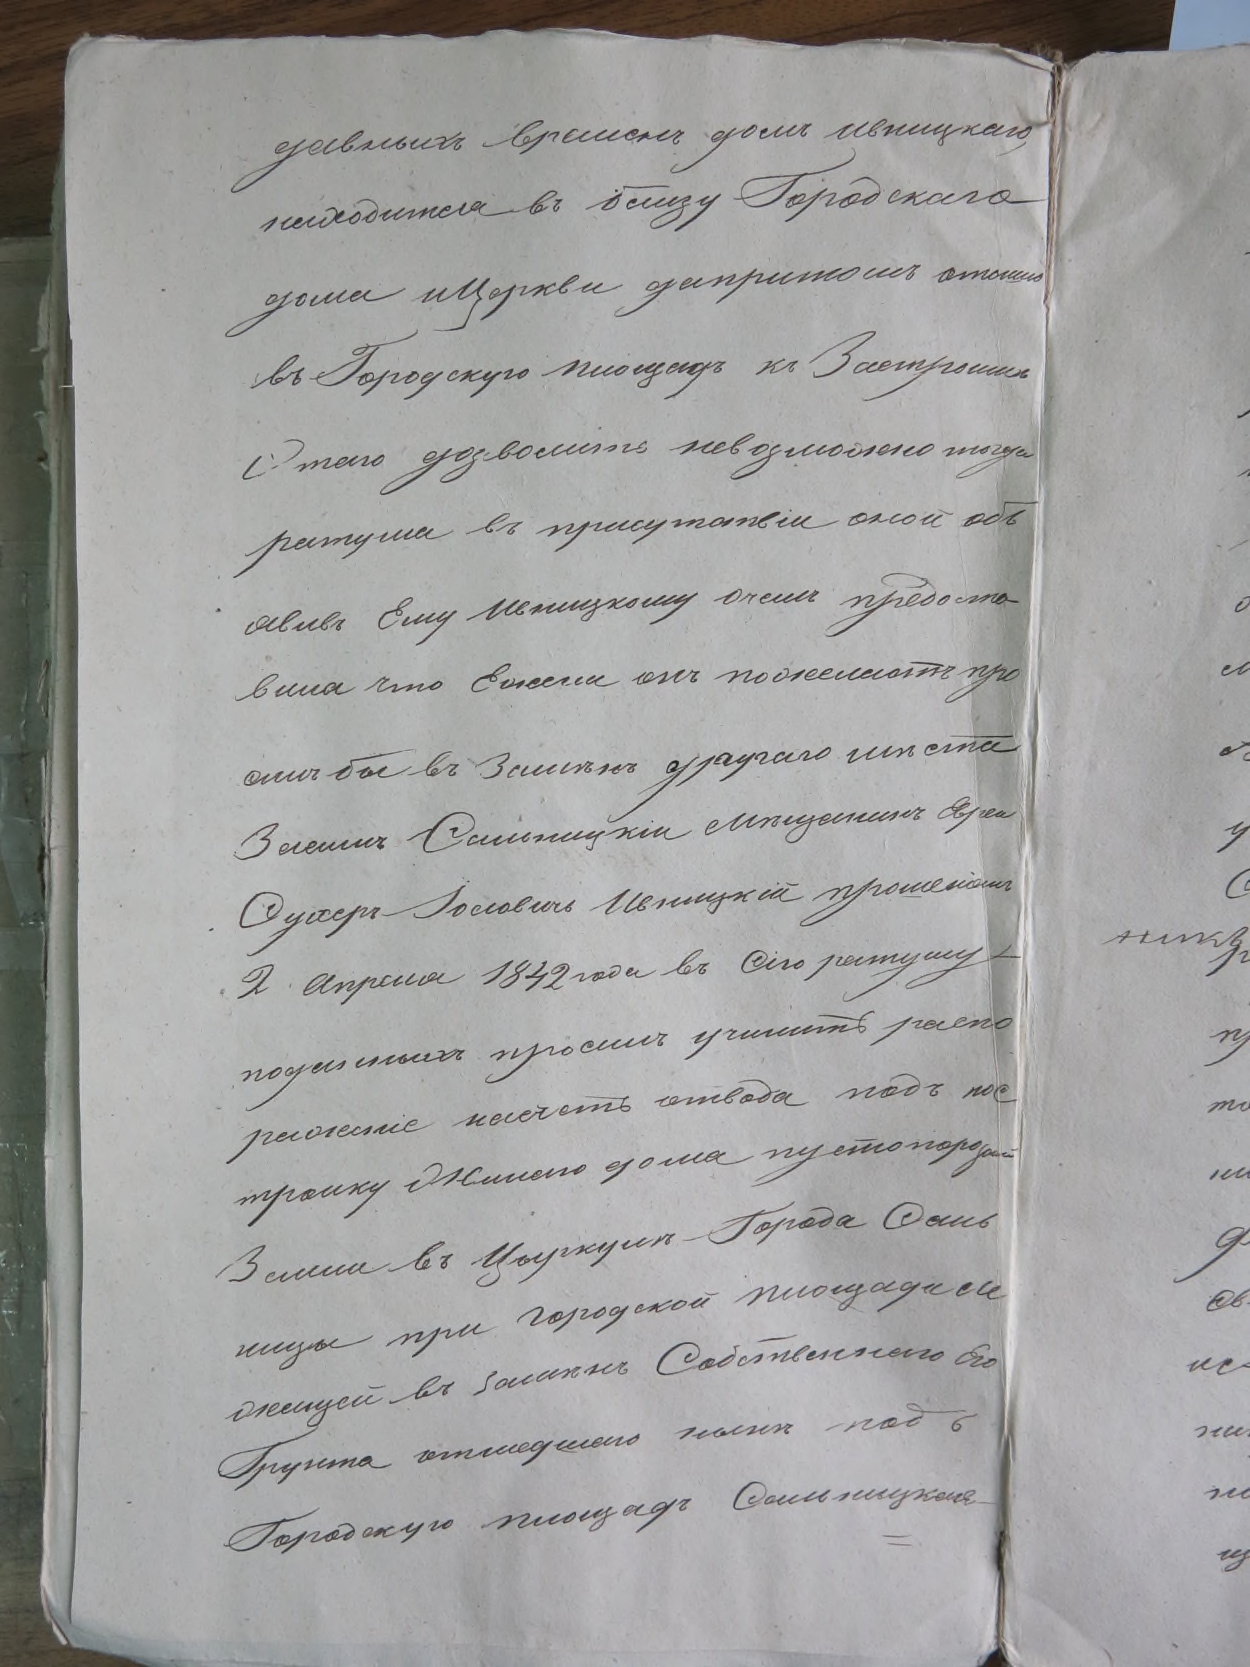 давныхъ временъ домъ ивницкаго
находится въ близу Городскаго
дома и Церкви да притомъ отошло
въ Городскую площадь къ Застроики
Отаго дозволить невозможно тогда
ратуша въ присутствіи оной объ
явивъ Ему Ивницкому очемъ предоста
вила что Ежели онъ пожелаетъ про
силъ бы въ Замѣнъ другаго мѣста
Засимъ Сальницкіи Мѣщанинъ Евреи
Сухеръ Іосьовичь Ивницкій прошеніемъ
2 Апреля 1842 года въ Сію ратушу
поданныхъ просилъ учинить распо
ряженіе насчетъ отвода подъ пос
тройку Жилаго дома пустопорозной
Земли въ Цыркулѣ Города Саль
ницы при городской площади ле
жащей въ Замѣнъ Собственнаго Его
Грунта отшедшаго нынѣ подъ
Городскую площадь Сальницкая